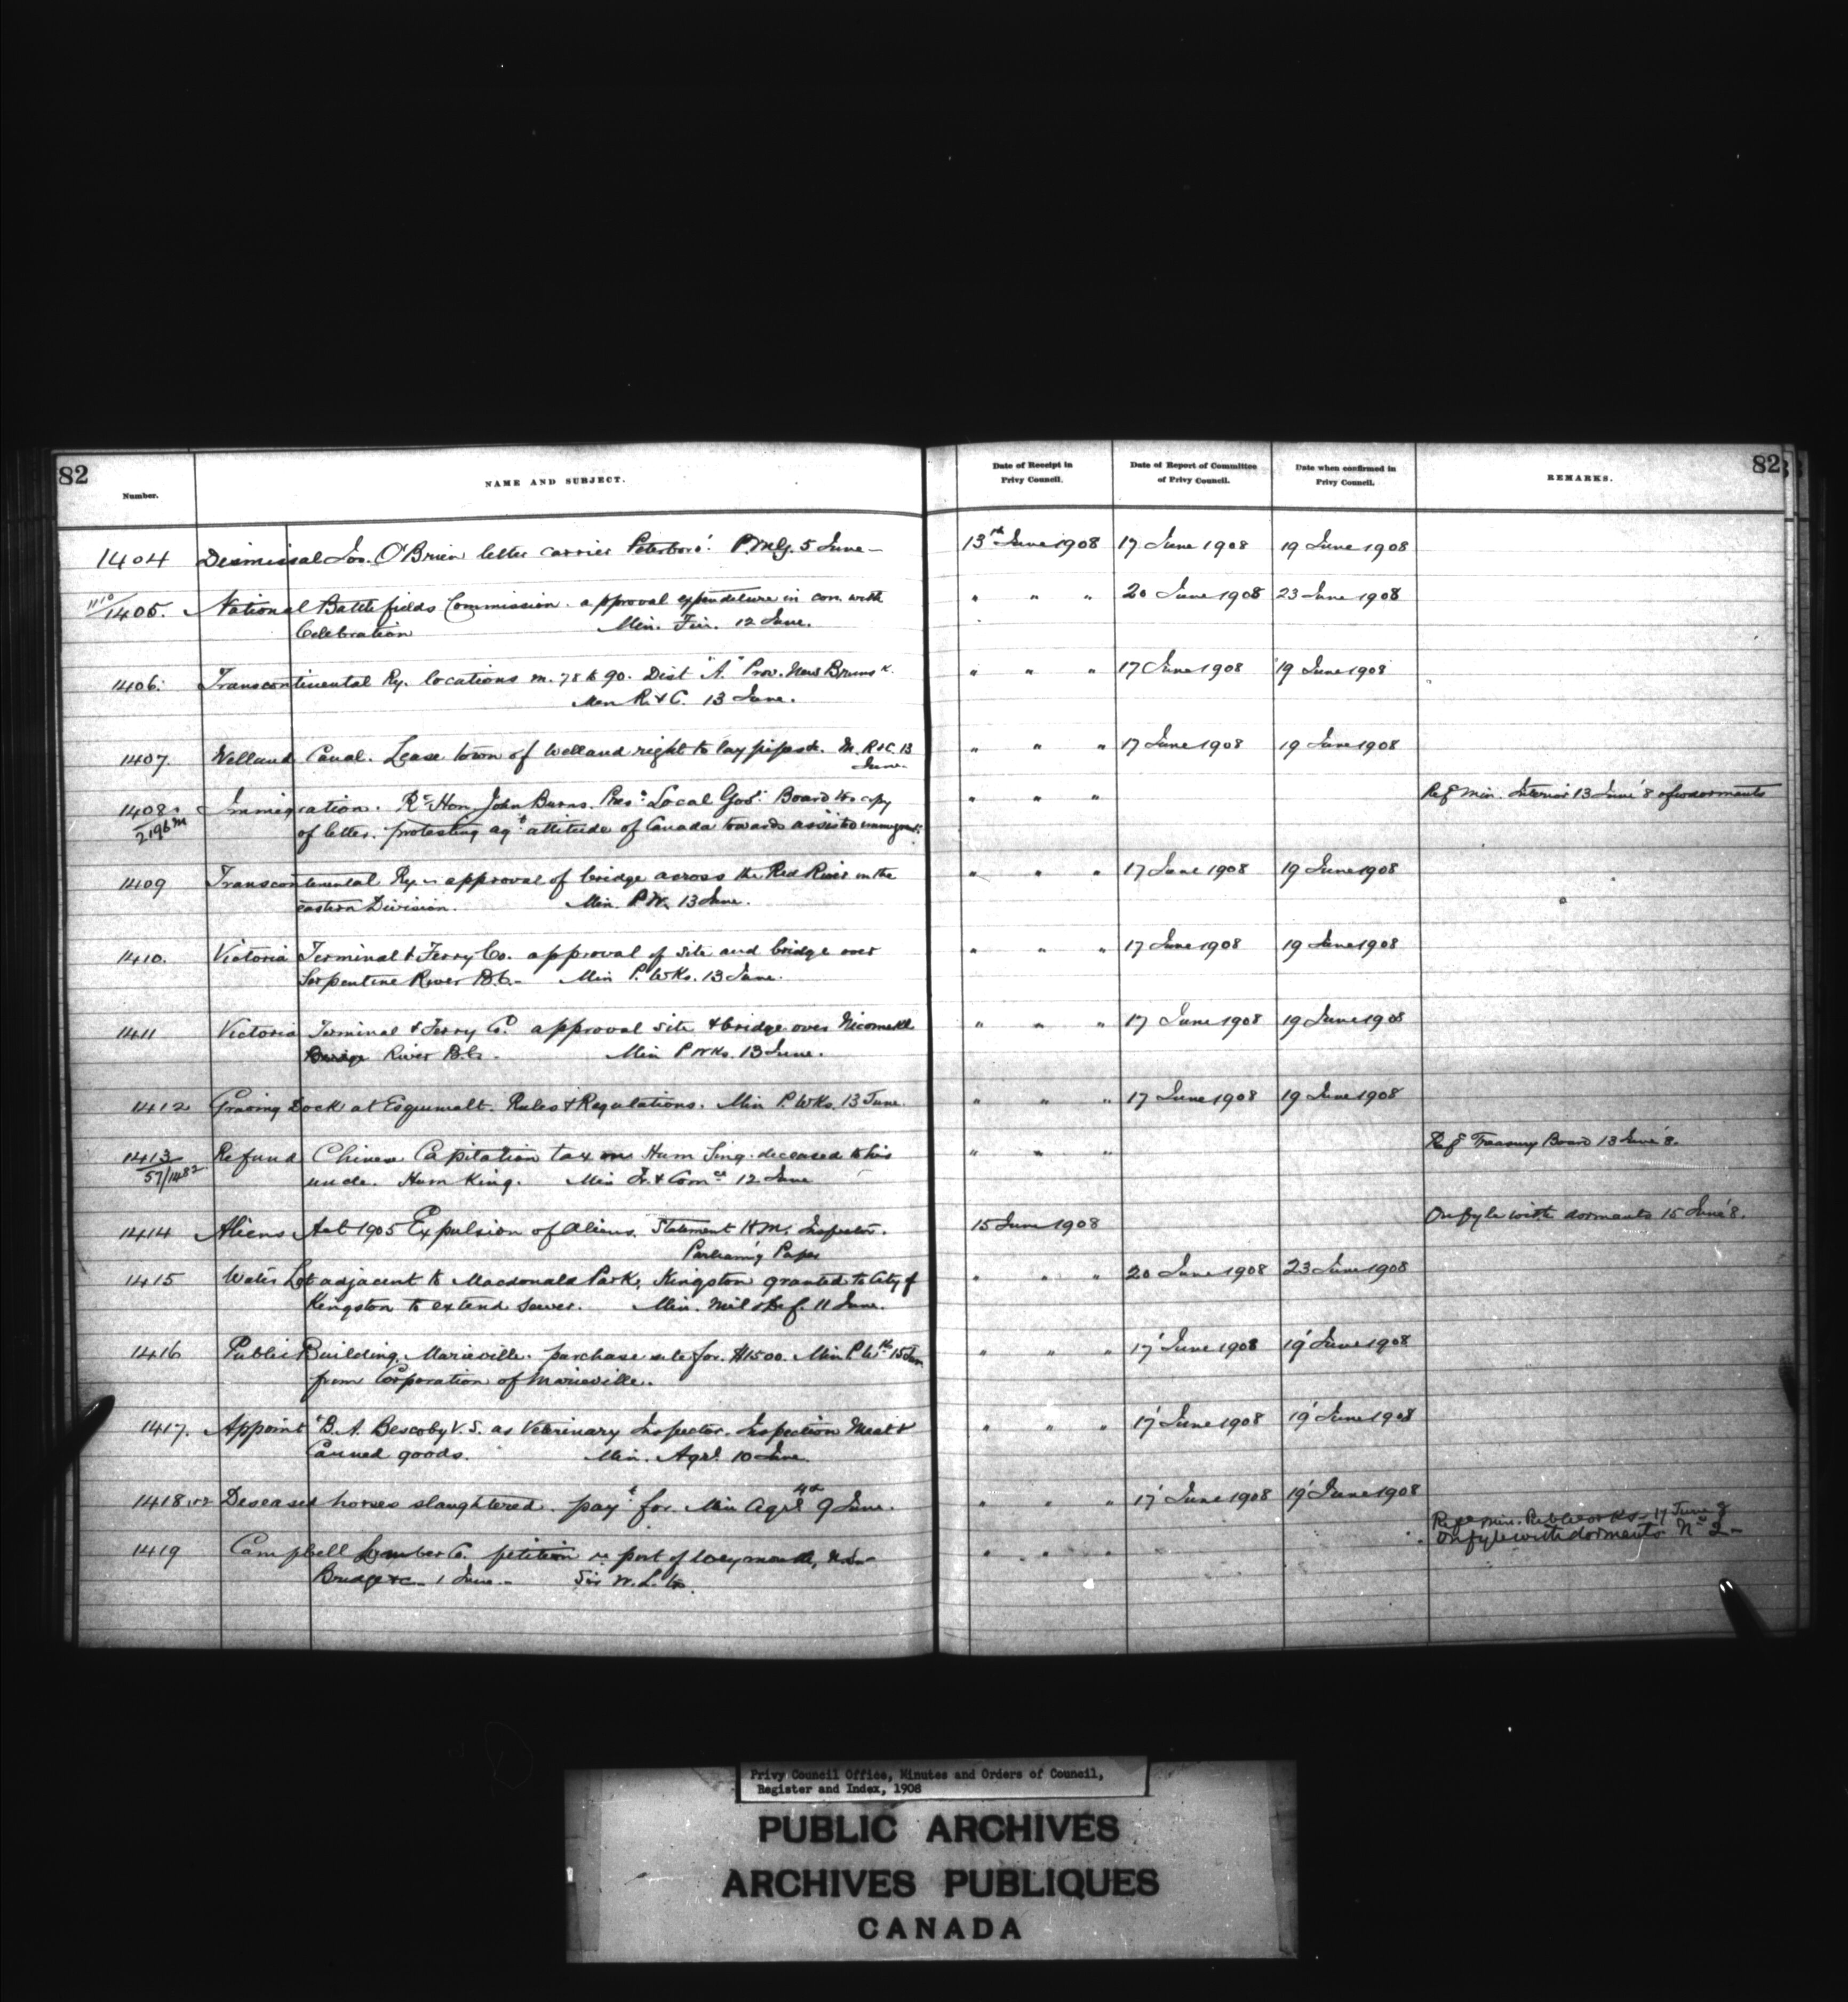 82
Number.
NAME AND SUBJECT.
Date of Receipt in Privy Council.
Date of Report of Committee of Privy Council.
Date when confirmed in Privy Council.
REMARKS.
82
1404 Dismissal Jos. O'Brien letter carrier Peterboro'. P.M.G. 5 June - 13th June 1908 17 June 1908 19 June 1908
1110/1405. National Battlefields Commission. approval expenditure in con. with " " " 20 June 1908 23 June 1908
Celebration Min. Fin. 12 June.
1406. Transcontinental Ry. locations m. 78 to 90. Dist "A" Prov. New Brunsk. " " " 17 June 1908 19 June 1908
Min R. & C. 13 June.
1407. Welland Canal. Lease town of Welland right to lay pipes &c. M. R & C. 13 " " " 17 June 1908 19 June 1908
June.
1408. Immigration. Rt Hon. John Burns. Pres: Local Govt. Board to copy " " " Refd Min. Interior 13 June '8
2196 M of letter. protesting agt attitude of Canada towards assisted
1409 Transcontinental Ry. approval of bridge across the Red River in the " " " 17 June 1908 19 June 1908
eastern Division. Min. P.W. 13 June.
1410. Victoria Terminal & Ferry Co. approval of site and bridge over " " " 17 June 1908 19 June 1908
Serpentine River B.C. - Min P. Wks. 13 June.
1411 Victoria Terminal & Ferry Co. approval site & bridge over Nicomekl " " " 17 June 1908 19 June 1908
River B.C. - Min P Wks. 13 June.
1412 Graving Dock at Esquimalt. Rules & Regulations. Min P. Wks. 13 June. " " " 17 June 1908 19 June 1908
1413 Refund Chinese Capitation tax on Hum Sing. deceased to his " " " Refd Treasury Board 13 June '8.
57/1482 uncle. Hum King. Min Tr. & Comce 12 June
1414 Aliens Act 1905 Expulsion of Aliens. Statement H.M. Inspector. 15 June 1908 On fyle with dormants 15 June '8.
Parliam'y Paper
1415 Water Lot adjacent to Macdonald Park, Kingston granted to City of " " " 20 June 1908 23 June 1908
Kingston to extend sewer. Min. Mil & Def. 11 June.
1416 Public Building, Marieville. purchase site for. $1500. Min P Wks 15 June " " " 17 June 1908 19 June 1908
from Corporation of Marieville.
1417. Appoint B. A. Bescoby V.S. as Veterinary Inspector. Inspection Meat & " " " 17 June 1908 19 June 1908
Canned goods. Min. Agrl 10 June.
1418 Deseased horses slaughtered. payt for. Min Agrl 9 June. " " " 17 June 1908 19 June 1908
Refd Min. Public Works 17 June 8
1419 Campbell Lumber Co. petition re port of Weymouth, N.S. " " " On fyle with dormants No 2 -
Bridge &c - 1 June. - Sir W. L. to.
Privy Council Office, Minutes and Orders of Council,
Register and Index, 1908
PUBLIC ARCHIVES
ARCHIVES PUBLIQUES
CANADA